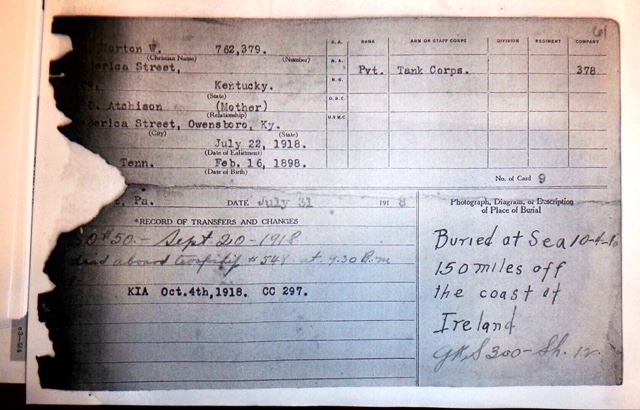 Morton W. 762,379.
(Christian Name) (Number)
erica Street,
Kentucky.
(State)
D. Atchison (Mother)
(Relationship)
erica Street, Owensboro, Ky.
(City) (State)
July 22, 1918.
(Date of Enlistment)
Tenn. Feb. 16, 1898.
(Date of Birth)
RANK ARM OR STAFF CORPS DIVISION REGIMENT COMPANY
R.A.
N.A.
Pvt. Tank Corps. 378
N.G.
O.R.C.
No. of Card 9
e, Pa. DATE July 31 191 8
*RECORD OF TRANSFERS AND CHANGES
SO#50.- Sept 20-1918
died aboard #548 at 9.30 P.m
KIA Oct.4th,1918. CC 297.
Photograph, Diagram, or Description
of Place of Burial
Buried at Sea 10-4-18
150 miles off
the coast of
Ireland
GRS 300-Sh. 12.
61